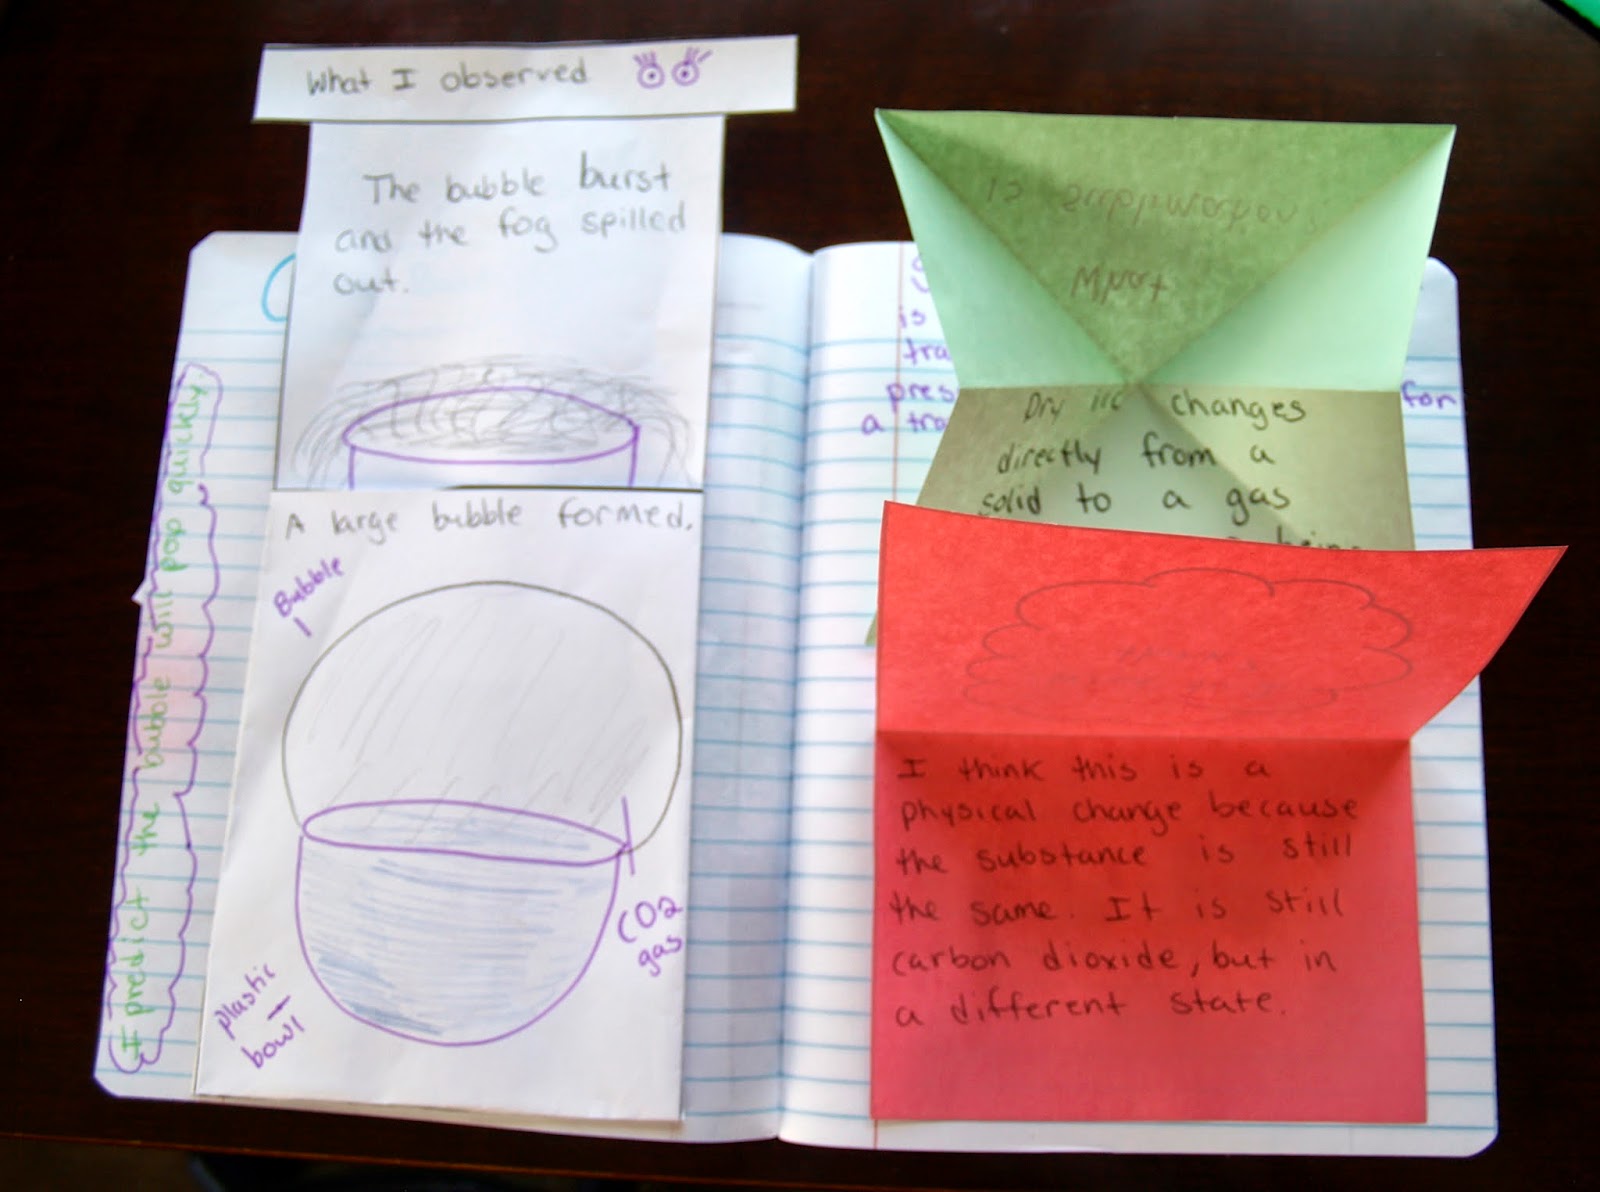 What I observed
The bubble burst
and the fog spilled
out.
A large bubble formed.
Bubble
CO2
gas
plastic
bowl
I predict the bubble will pop quickly.
is
tra
pres
for
a tra
What
is sublimation?
Dry ice changes
directly from a
solid to a gas
being
I think this is a
physical change because
the substance is still
the same. It is still
carbon dioxide, but in
a different state.